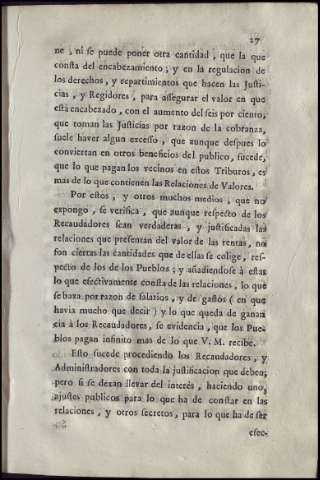 27
ne , ni se puede poner otra cantidad , que la que
consta del encabezamiento ; y en la regulacion de
los derechos , y repartimientos que hacen las Justi-
cias , y Regidores , para assegurar el valor en que
está encabezado , con el aumento del seis por ciento,
que toman las Justicias por razon de la cobranza,
suele haver algun excesso , que aunque despues lo
conviertan en otros beneficios del publico , sucede,
que lo que pagan los vecinos en estos Tributos, es
mas de lo que contienen las Relaciones de Valores.
Por estos , y otros muchos medios , que no
expongo , se verifica , que aunque respecto de los
Recaudadores sean verdaderas , y justificadas las
relaciones que presentan del valor de las rentas, no
son ciertas las cantidades que de ellas se colige, res-
pecto de los de los Pueblos ; y añadiendose à estas
lo que efectivamente consta de las relaciones, lo que
se baxa por razon de salarios , y de gastos ( en que
havia mucho que decir ) y lo que queda de ganan
cia à los Recaudadores, se evidencia , que los Pue-
blos pagan infinito mas de lo que V. M. recibe.
Esto sucede procediendo los Recaudadores , y
Administradores con toda la justificacion que deben;
pero si se dexan llevar del interès , haciendo uno,
ajustes publicos para lo que ha de constar en las
relaciones , y otros secretos, para lo que ha de ser
efec-